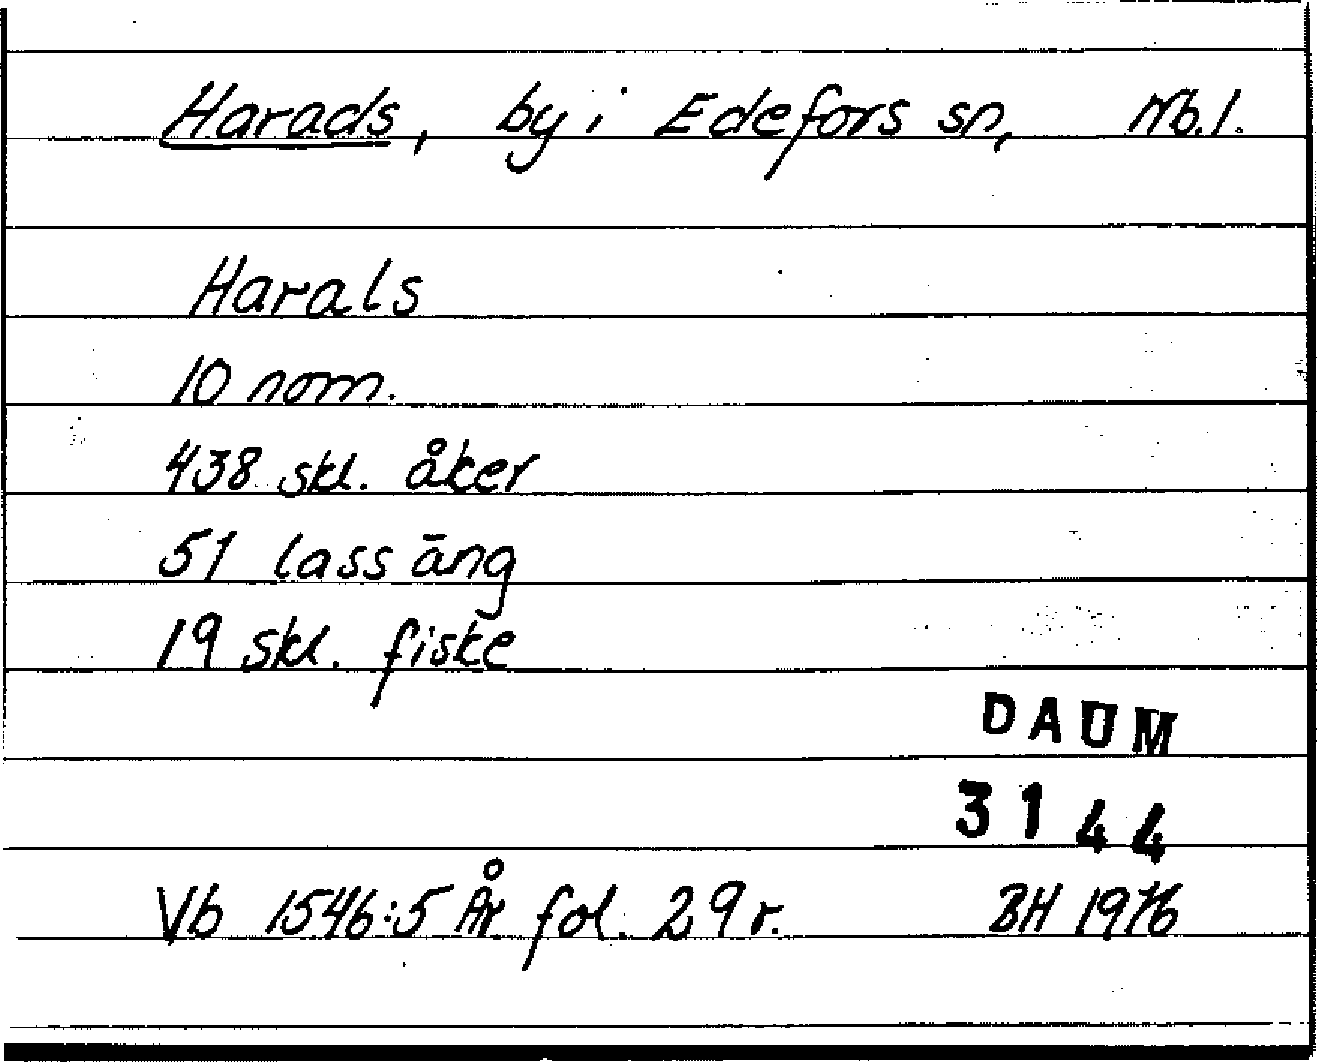 Harads, by i Edefors sn, Nb.l.
Harals
10 nom.
438 skl. åker
51 lass äng
19 skl. fiske
DAUM
3144
Vb 1546:5 År fol. 29 r. BH 1976